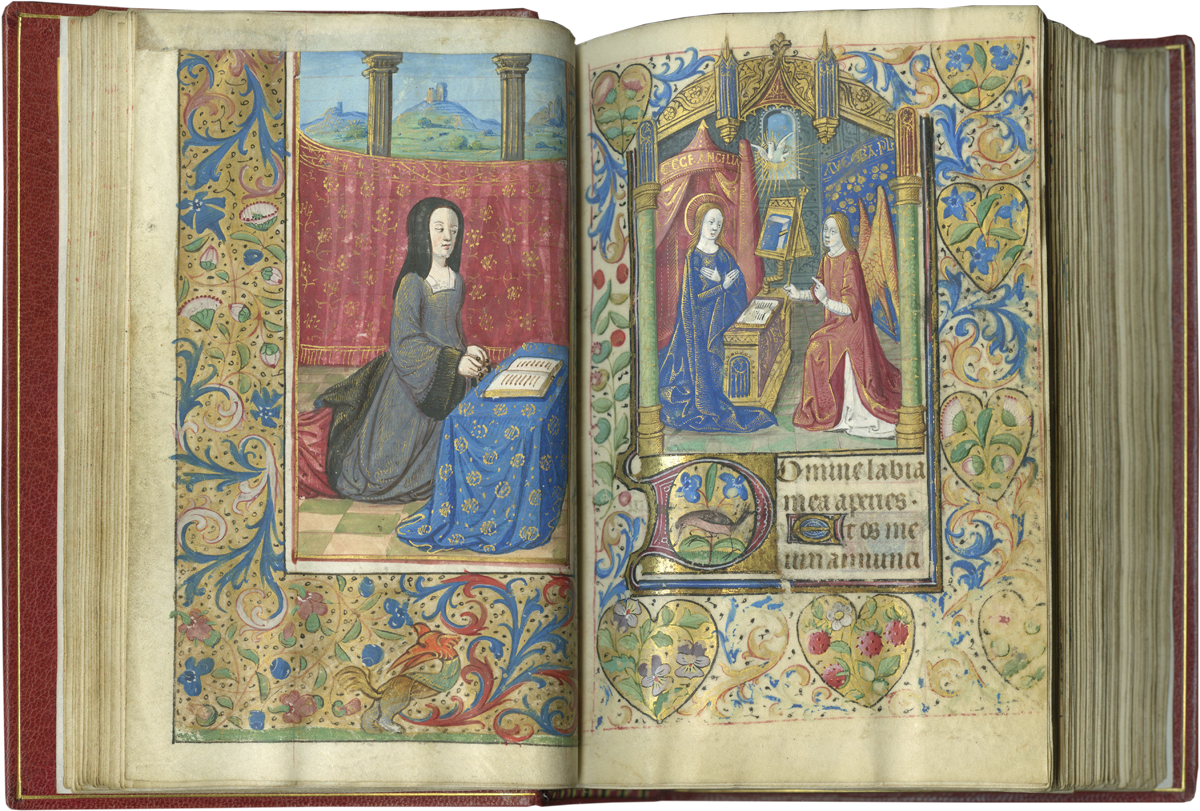 ECCE ANCILLA
Domine labia
mea aperies
Et os me
um annunci